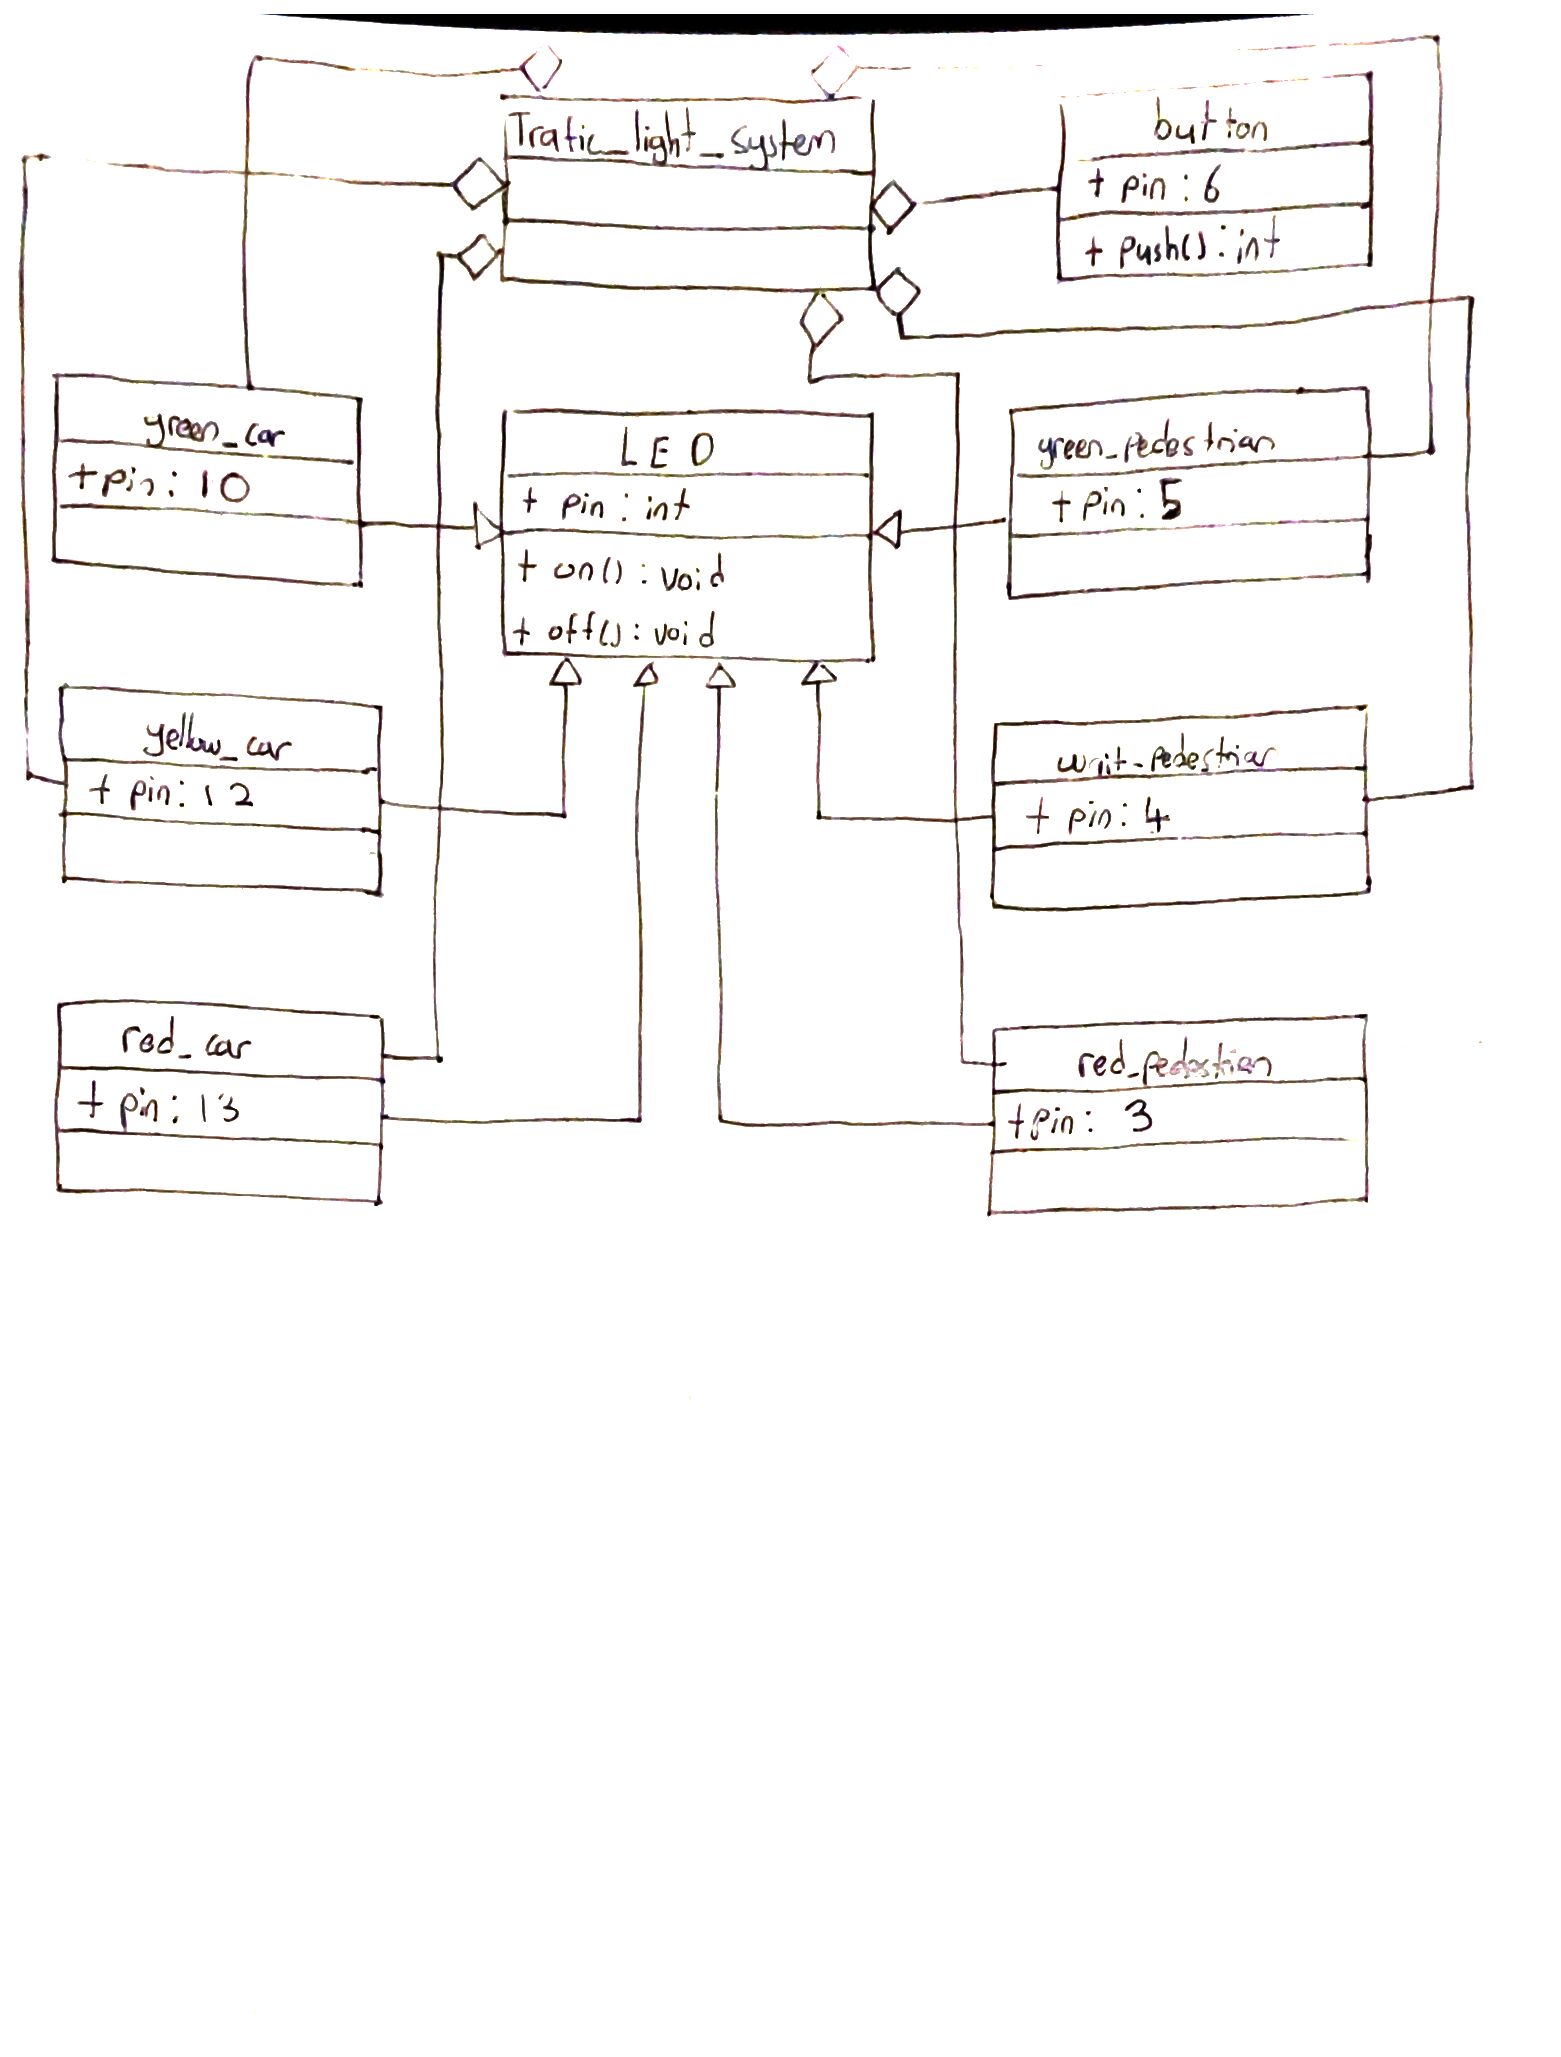 Trafic_light_system
button
+ pin : 6
+ push() : int
green_car
+ pin : 10
LED
+ pin : int
+ on() : void
+ off() : void
green_pedestrian
+ pin : 5
yellow_car
+ pin : 12
wait_pedestrian
+ pin : 4
red_car
+ pin : 13
red_pedestian
+ pin : 3